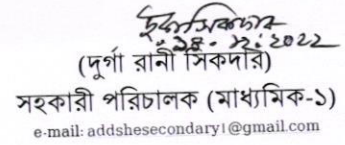 দুর্গাসিকদার
১৪.১২.২০২২
(দুর্গা রানী সিকদার)
সহকারী পরিচালক (মাধ্যমিক-১)
e-mail: addshesecondary1@gmail.com